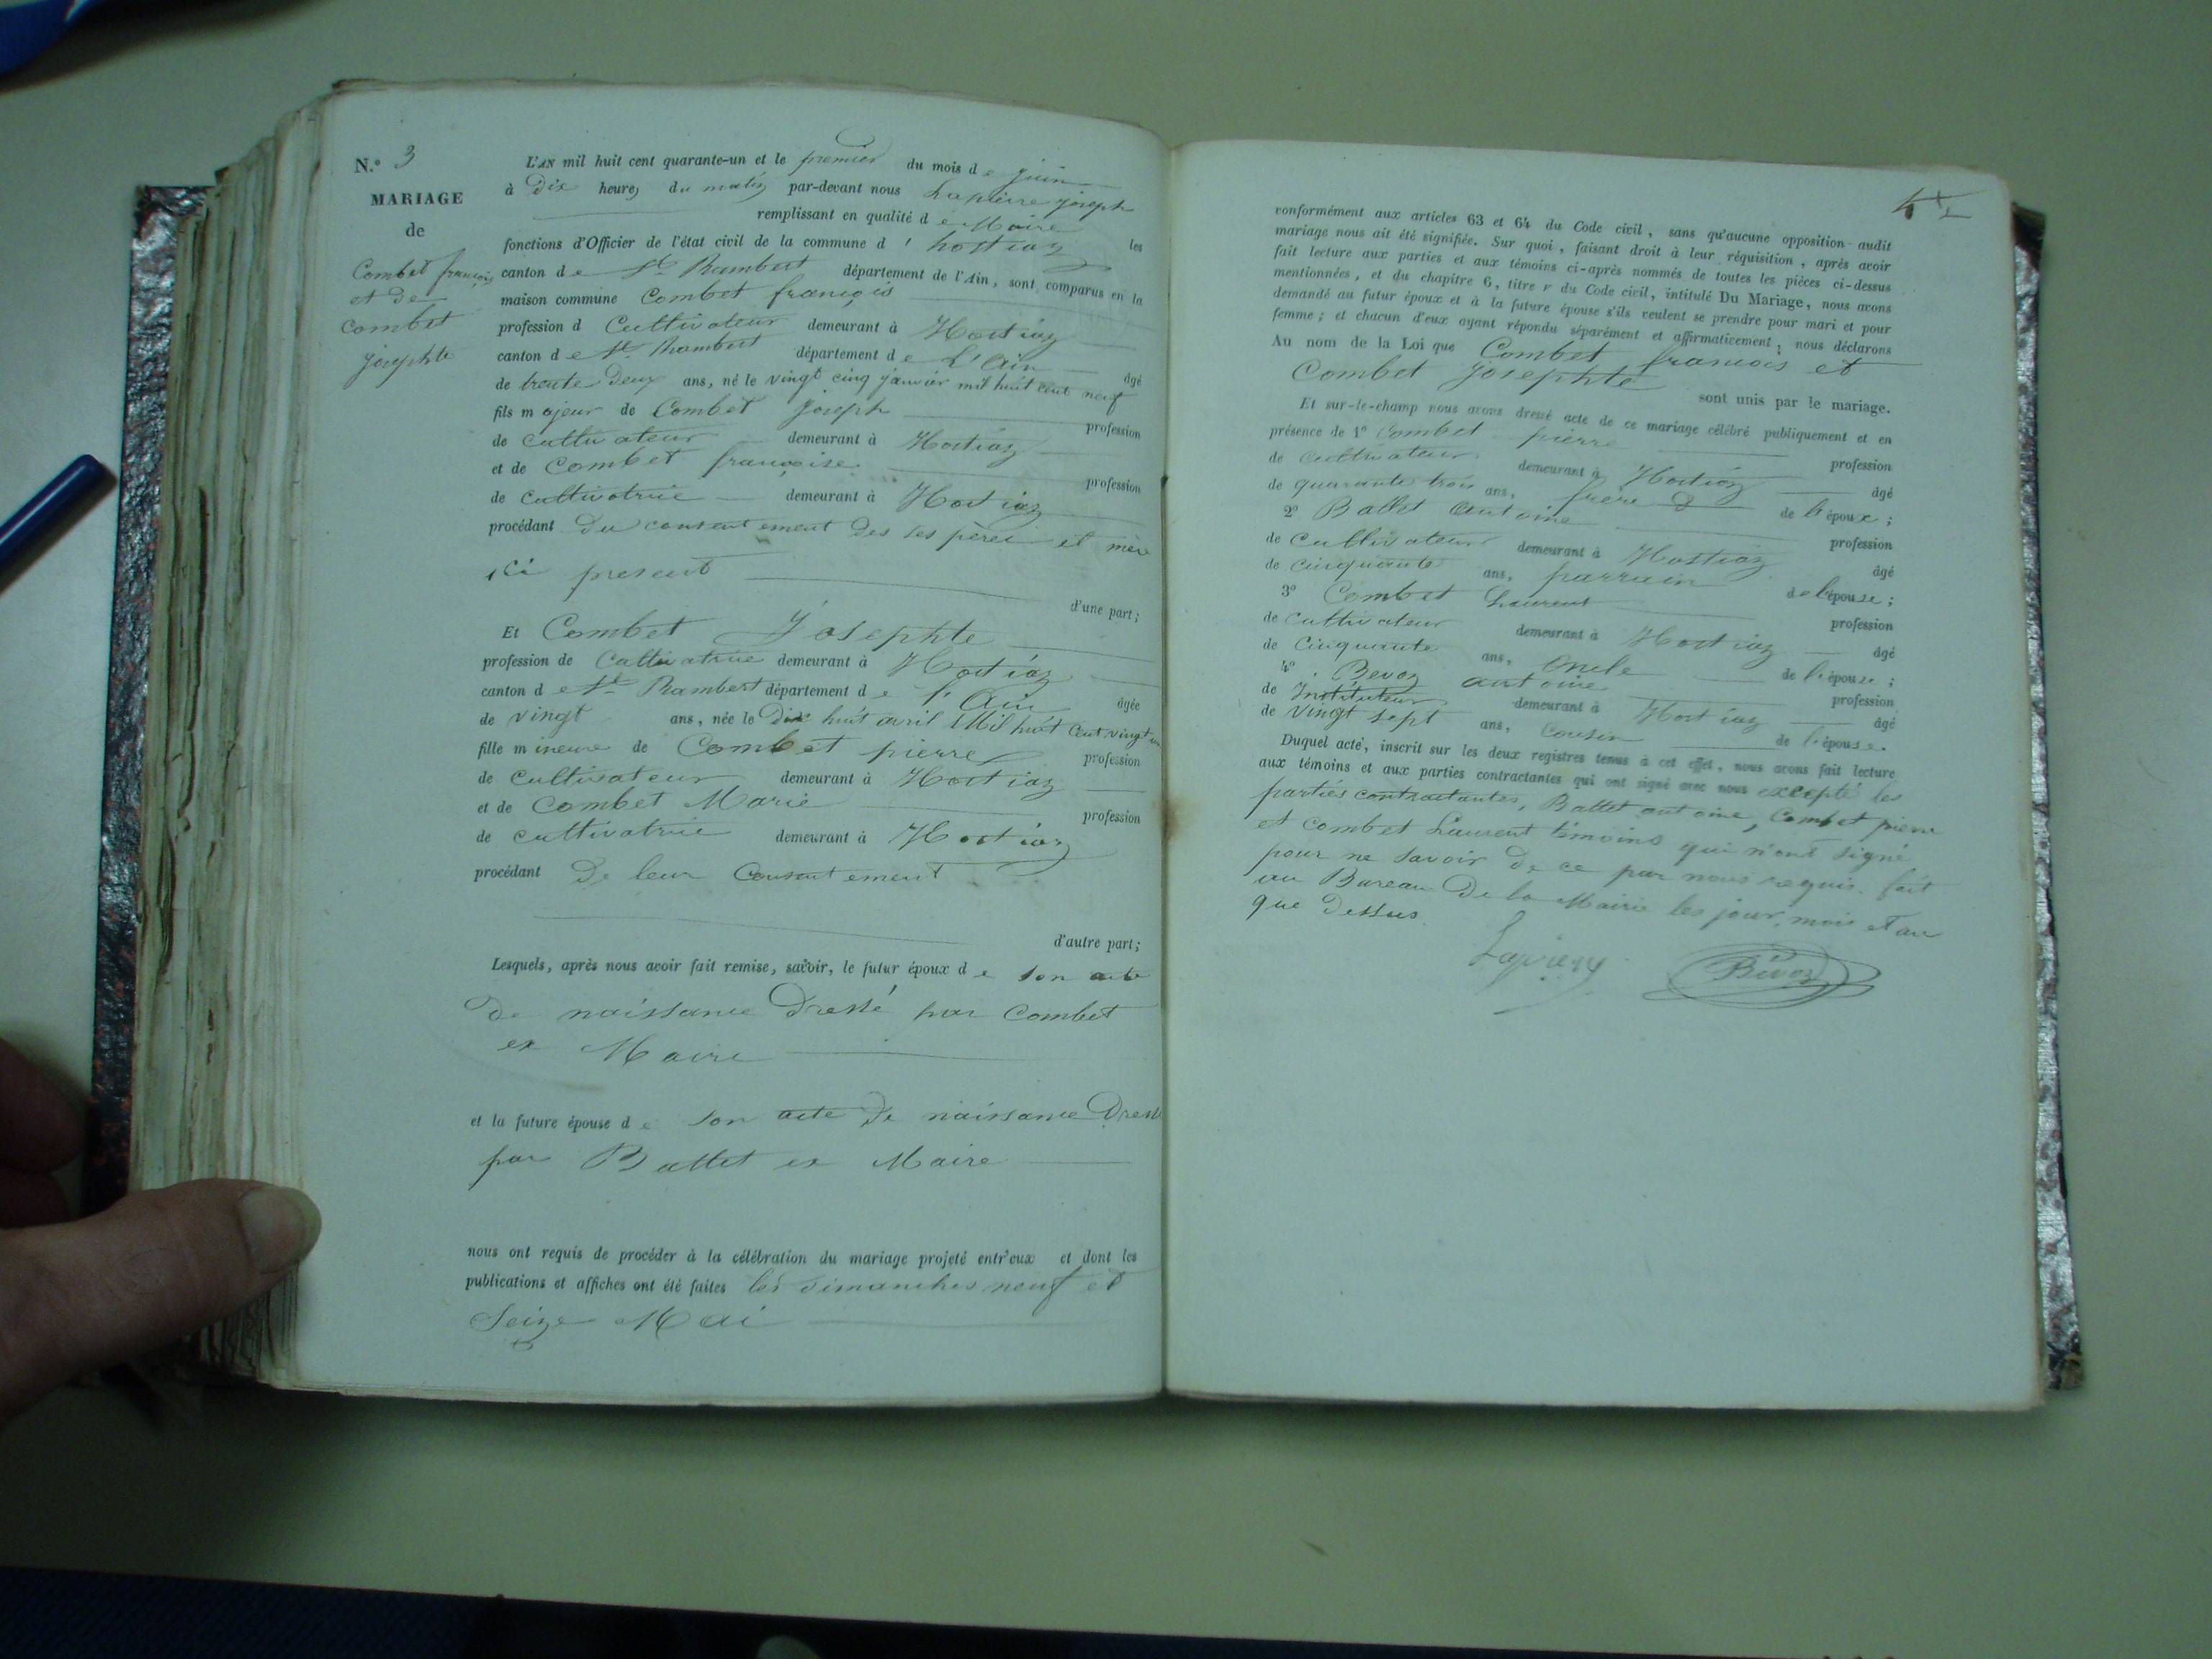 N.° 3
MARIAGE
de
Combet françois
et de
Combet
josephte
L'AN mil huit cent quarante-un et le premier du mois de juin
à Dix heures du matin par-devant nous Lapierre joseph
remplissant en qualité de Maire les
fonctions d'Officier de l'état civil de la commune d'hostiaz
canton de St Rambert département de l'Ain, sont comparus en la
maison commune Combet françois
profession d Cultivateur demeurant à Hostiaz
canton de St Rambert département de L'Ain âgé
de trente Deux ans, né le vingt cinq janvier mil huit cent neuf
fils majeur de Combet joseph profession
de cultivateur demeurant à Hostiaz
et de Combet françoise profession
de cultivatrice demeurant à Hostiaz
procédant Du consentement Des ses pères et mère
ici present
d'une part;
Et Combet Josephte
profession de Cultivatrice demeurant à Hostiaz
canton de St Rambert département de l'Ain âgée
de vingt ans, née le Dix huit avril Mil huit Cent vingt un
fille mineure de Combet pierre profession
de Cultivateur demeurant à Hostiaz
et de Combet Marie profession
de cultivatrice demeurant à Hostiaz
procédant De leur Consentement
d'autre part;
Lesquels, après nous avoir fait remise, savoir, le futur époux de son acte
De naissance Dressé par Combet
ex Maire
et la future épouse de son acte De naissance Dressé
par Ballet ex Maire
nous ont requis de procéder à la célébration du mariage projeté entr'eux et dont les
publications et affiches ont été faites les Dimanches neuf et
Seize Mai
conformément aux articles 63 et 64 du Code civil, sans qu'aucune opposition audit
mariage nous ait été signifiée. Sur quoi, faisant droit à leur réquisition, après avoir
fait lecture aux parties et aux témoins ci-après nommés de toutes les pièces ci-dessus
mentionnées, et du chapitre 6, titre v du Code civil, intitulé Du Mariage, nous avons
demandé au futur époux et à la future épouse s'ils veulent se prendre pour mari et pour
femme; et chacun d'eux ayant répondu séparément et affirmativement, nous déclarons
Au nom de la Loi que Combet francois et
Combet josephte sont unis par le mariage.
Et sur-le-champ nous avons dressé acte de ce mariage célébré publiquement et en
présence de 1° Combet pierre profession
de cultivateur demeurant à Hostiaz âgé
de quarante trois ans, frère de l'époux;
2° Ballet Antoine profession
de Cultivateur demeurant à Hostiaz âgé
de cinquante ans, parrain de l'épouse;
3° Combet Laurent profession
de Cultivateur demeurant à Hostiaz âgé
de Cinquante ans, oncle de l'épouse;
4° Bevoz antoine profession
de Instituteur demeurant à Hostiaz âgé
de Vingt sept ans, Cousin de l'épouse.
Duquel acte, inscrit sur les deux registres tenus à cet effet, nous avons fait lecture
aux témoins et aux parties contractantes qui ont signé avec nous excepté les
parties contractantes, Ballet antoine, Combet pierre
et Combet Laurent témoins qui n'ont signé
pour ne savoir De ce par nous requis. fait
au Bureau De la Mairie les jour, mois et an
que Dessus
Lapierre Bevoz